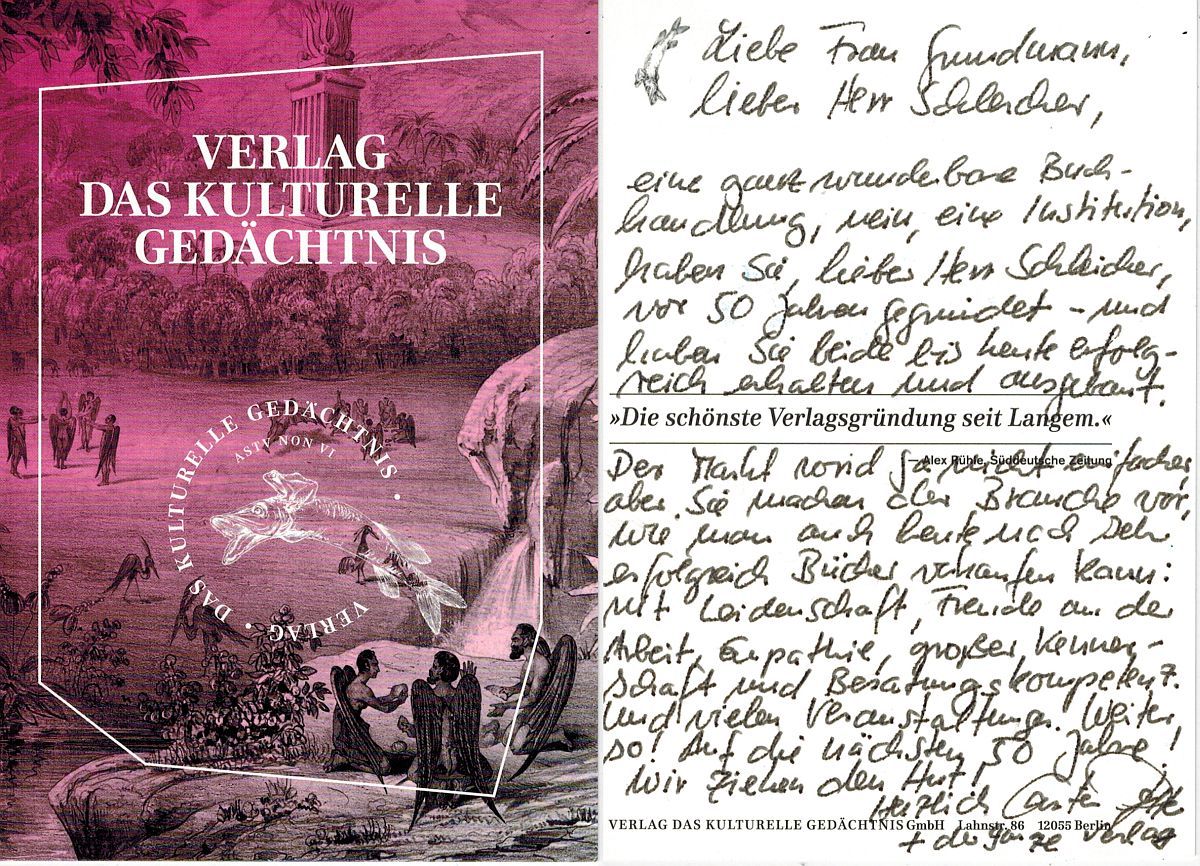 VERLAG
DAS KULTURELLE
GEDÄCHTNIS
DAS KULTURELLE GEDÄCHTNIS · VERLAG ·
ASTV NON VI
Liebe Frau Grundmann,
lieber Herr Schleicher,
eine ganz wunderbare Buch-
handlung, nein, eine Institution,
haben Sie, lieber Herr Schleicher,
vor 50 Jahren gegründet – und
haben Sie beide bis heute erfolg-
reich erhalten und ausgebaut.
»Die schönste Verlagsgründung seit Langem.«
— Alex Rühle, Süddeutsche Zeitung
Der Markt wird gar nicht einfacher,
aber Sie machen der Branche vor,
wie man auch heute noch sehr
erfolgreich Bücher verkaufen kann:
mit Leidenschaft, Freude an der
Arbeit, Empathie, großer Kenner-
schaft und Beratungskompetenz.
Und vielen Veranstaltungen. Weiter
so! Auf die nächsten 50 Jahre!
Wir ziehen den Hut!
Herzlich Carsten
+ der ganze Verlag
VERLAG DAS KULTURELLE GEDÄCHTNIS GmbH Lahnstr. 86 12055 Berlin